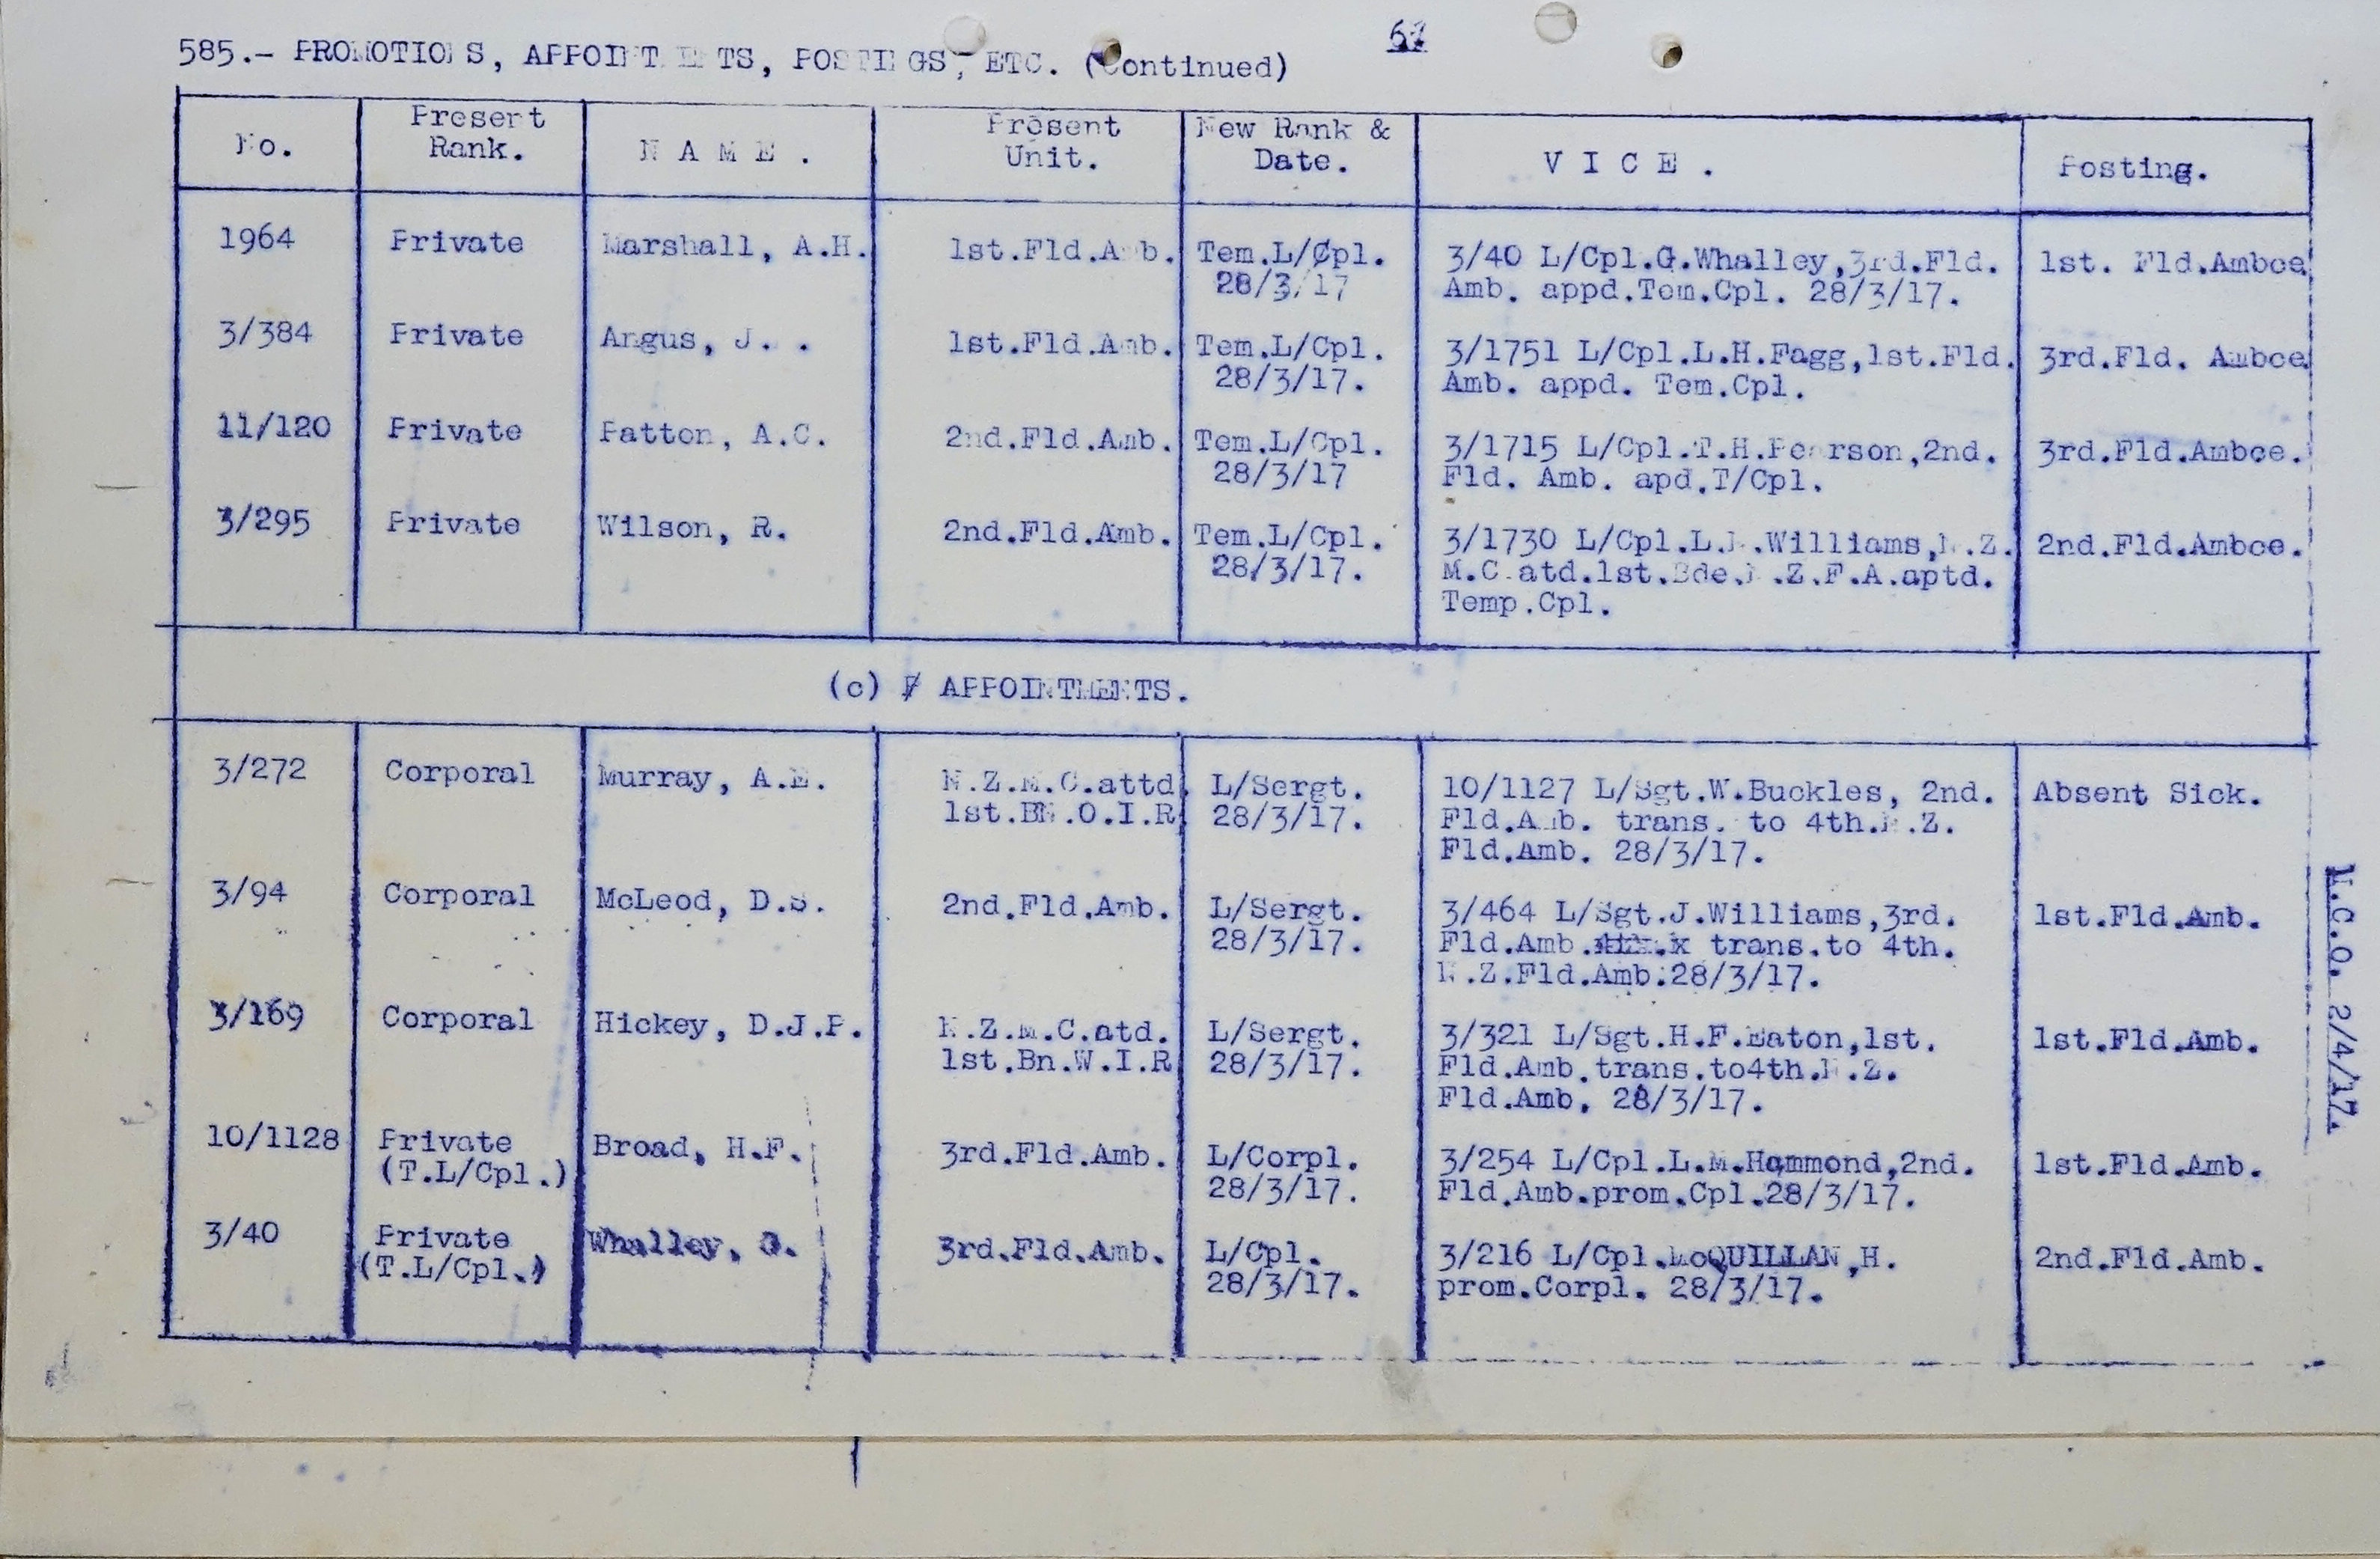 585.- PROMOTIONS, APPOINTMENTS, POSTINGS, ETC. (Continued)
No. Present Rank. N A M E . Present Unit. New Rank & Date. V I C E . Posting.
1964 Private Marshall, A.H. 1st.Fld.Amb. Tem.L/Cpl. 3/40 L/Cpl.G.Whalley,3rd.Fld. 1st. Fld.Ambce
28/3/17 Amb. appd.Tem.Cpl. 28/3/17.
3/384 Private Angus, J. . 1st.Fld.Amb. Tem.L/Cpl. 3/1751 L/Cpl.L.H.Fagg,1st.Fld. 3rd.Fld. Ambce
28/3/17. Amb. appd. Tem.Cpl.
11/120 Private Patton, A.C. 2nd.Fld.Amb. Tem.L/Cpl. 3/1715 L/Cpl.T.H.Pearson,2nd. 3rd.Fld.Ambce.
28/3/17 Fld. Amb. apd.T/Cpl.
3/295 Private Wilson, R. 2nd.Fld.Amb. Tem.L/Cpl. 3/1730 L/Cpl.L. .Williams,N.Z. 2nd.Fld.Ambce.
28/3/17. M.C.atd.1st.Bde.N.Z.F.A.aptd.
Temp.Cpl.
(c) APPOINTMENTS.
3/272 Corporal Murray, A.E. N.Z.M.C.attd. L/Sergt. 10/1127 L/Sgt.W.Buckles, 2nd. Absent Sick.
1st.BN.O.I.R 28/3/17. Fld.Amb. trans. to 4th.N.Z.
Fld.Amb. 28/3/17.
3/94 Corporal McLeod, D.S. 2nd.Fld.Amb. L/Sergt. 3/464 L/Sgt.J.Williams,3rd. 1st.Fld.Amb.
28/3/17. Fld.Amb. trans.to 4th.
N.Z.Fld.Amb.28/3/17.
3/169 Corporal Hickey, D.J.P. N.Z.M.C.atd. L/Sergt. 3/321 L/Sgt.H.F.Eaton,1st. 1st.Fld.Amb.
1st.Bn.W.I.R 28/3/17. Fld.Amb.trans.to4th.N.Z.
Fld.Amb. 28/3/17.
10/1128 Private Broad, H.F. 3rd.Fld.Amb. L/Corpl. 3/254 L/Cpl.L.M.Hammond,2nd. 1st.Fld.Amb.
(T.L/Cpl.) 28/3/17. Fld.Amb.prom.Cpl.28/3/17.
3/40 Private Whalley, G. 3rd.Fld.Amb. L/Cpl. 3/216 L/Cpl.McQUILLAN,H. 2nd.Fld.Amb.
(T.L/Cpl.) 28/3/17. prom.Corpl. 28/3/17.
N.C.O. 2/4/17.